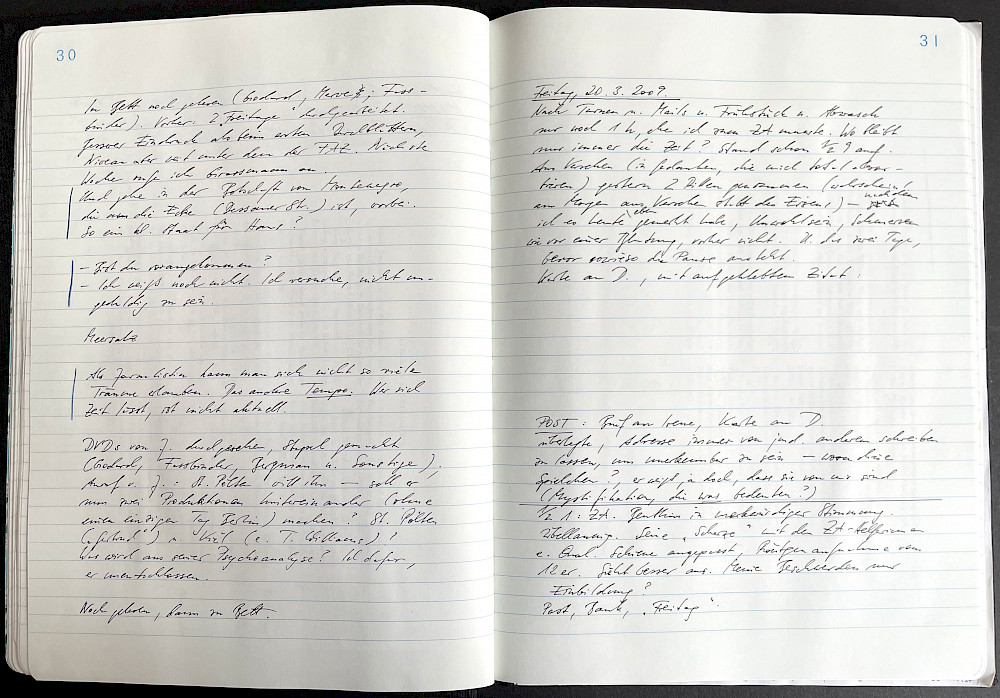 30
Im Bett noch gelesen (Godard, Merve; Fass-
binder). Vorher 2 "Freitage" durchgearbeitet.
Besserer Eindruck als beim ersten Durchblättern,
Niveau aber weit unter dem der FAZ. Nächste
Woche rufe ich Grossmann an.
Und gehe in der Botschaft von Montenegro,
die um die Ecke (Dessauer Str.) ist, vorbei.
So ein kl. Staat für Hans?
– Bist du vorangekommen?
– Ich weiß noch nicht. Ich versuche, nicht un-
geduldig zu sein.
Meersalz
Als Journalistin kann man sich nicht so viele
Träume erlauben. Das andere Tempo. Wer sich
Zeit lässt, ist nicht aktuell.
DVDs von J. durchgesehen, Stapel gemacht
(Godard, Fassbinder, Bergman u. Sonstige).
Anruf v. J.: St. Pölten will ihn – soll er
nun zwei Produktionen hintereinander (ohne
einen einzigen Tag Berlin) machen? St. Pölten
u. Kiel (e. T. Williams)?
Was wird aus seiner Psychoanalyse? Ich dafür,
er unentschlossen.
Noch gelesen, dann zu Bett.
31
Freitag, 20.3.2009.
Nach Turnen u. Mails u. Frühstück u. Abwasch
nur noch 1 h, ehe ich zum ZA musste. Wo bleibt
nur immer die Zeit? Stand schon 1/2 9 auf.
Aus Versehen (in Gedanken, die mich total absor-
bieren) gestern 2 Pillen genommen (wahrscheinl.
am Morgen aus Versehen statt des Eisens) – nachdem
ich es heute eben gemerkt habe, Unwohlsein, Schmerzen
wie vor einer Blutung, vorher nicht. U. das zwei Tage,
bevor sowieso die Pause ansteht.
Karte an D., mit aufgeklebtem Zitat.
POST: Brief an Irene, Karte an D.
überlegte, Adresse immer von jmd. anderem schreiben
zu lassen, um unerkennbar zu sein – wozu diese
Spielchen?, er weiß ja doch, dass sie von mir sind
(Mystifikation, die was bedeuten?)
1/2 1: ZA. in merkwürdiger Stimmung.
Seine "Scherze" mit den ZA-Helferinnen
e. Qual. Schiene angepasst, Röntgenaufnahme vom
12er. Sieht besser aus. Meine Beschwerden nur
Einbildung?
Post, Bank, "Freitag".